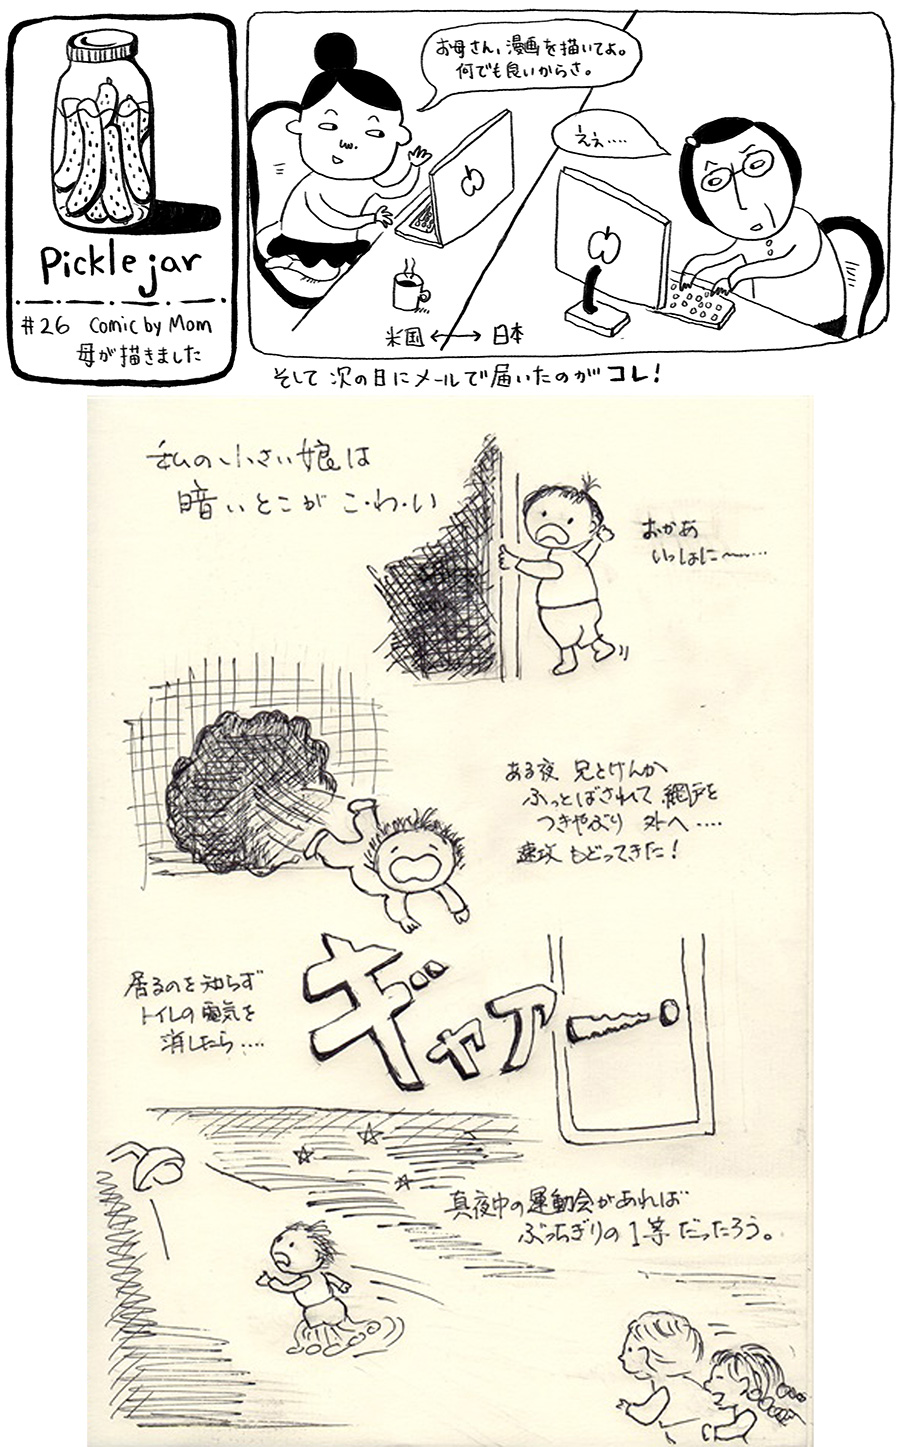 Pickle jar
#26 Comic by Mom
母が描きました
お母さん、漫画を描いてよ。
何でも良いからさ。
ええ....
米国 ←→ 日本
そして 次の日にメールで届いたのが コレ!
私の小さい娘は
暗いとこが こ・わ・い
おかあ
いっしょに〜....
ある夜 兄とけんか
ふっとばされて 網戸を
つきやぶり 外へ....
速攻 もどってきた!
居るのを知らず
トイレの電気を
消したら....
ギャアー
真夜中の運動会があれば
ぶっちぎりの1等だったろう。